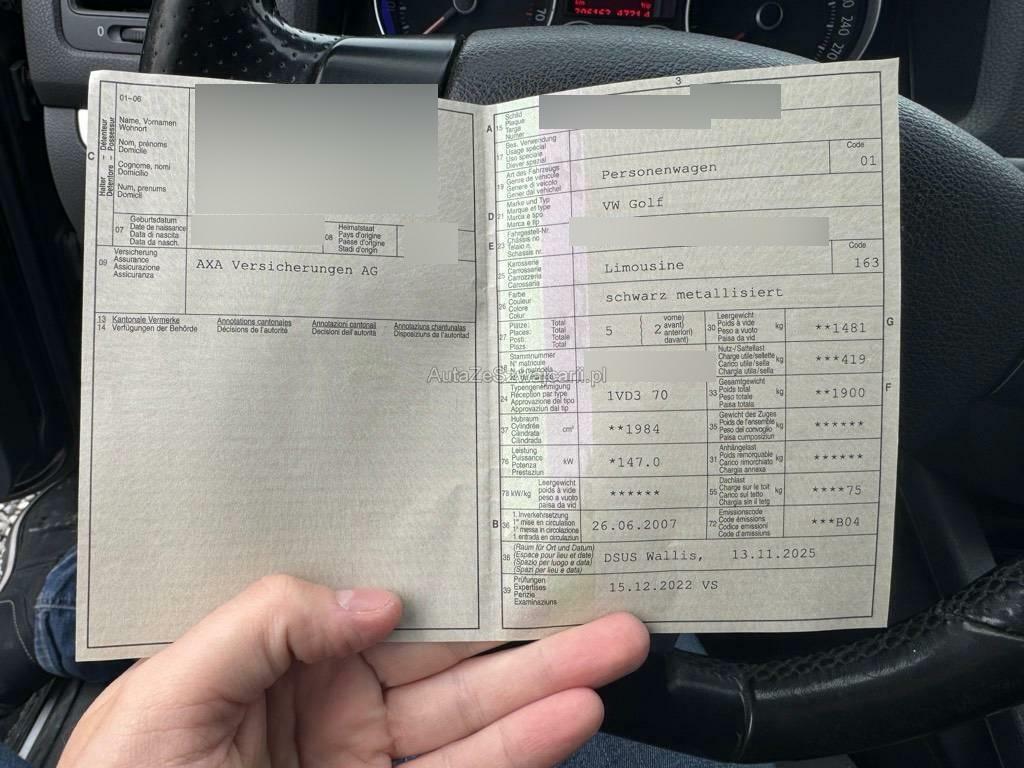 70
km
240
270
0
3
01-06
Halter – Détenteur
Detentore – Possessur
C
Name, Vornamen
Wohnort
Nom, prénoms
Domicile
Cognome, nomi
Domicilio
Num, prenums
Domicil
07
Geburtsdatum
Date de naissance
Data di nascita
Data da nasch.
08
Heimatstaat
Pays d'origine
Paese d'origine
Stadi d'origin
09
Versicherung
Assurance
Assicurazione
Assicuranza
AXA Versicherungen AG
13 Kantonale Vermerke
14 Verfügungen der Behörde
Annotations cantonales
Décisions de l'autorité
Annotazioni cantonali
Decisioni dell'autorità
Annotaziuns chantunalas
Disposiziuns da l'autoritad
A 15
Schild
Plaque
Targa
Numer
17
Bes. Verwendung
Usage spécial
Uso speciale
Diever spezial
19
Art des Fahrzeugs
Genre de véhicule
Genere di veicolo
Gener dal vehichel
Personenwagen
Code
01
D 21
Marke und Typ
Marque et type
Marca e tipo
Marca e tip
VW Golf
E 23
Fahrgestell-Nr.
Châssis no
Telaio n.
Schassis nr.
25
Karosserie
Carrosserie
Carrozzeria
Carossaria
Limousine
Code
163
26
Farbe
Couleur
Colore
Colur
schwarz metallisiert
27
Plätze: Total
Places: Total
Posti: Totale
Plazs: Total
5
2
vorne)
avant)
anteriori)
davant)
30
Leergewicht
Poids à vide
Peso a vuoto
Paisa da vid
kg
**1481
G
Stammnummer
N° matricule
N. di matricola
32
Nutz-/Sattellast
Charge utile/sellette
Carico utile/sella
Chargia utila/sella
kg
***419
24
Typengenehmigung
Réception par type
Approvazione del tipo
Approvaziun dal tip
1VD3 70
33
Gesamtgewicht
Poids total
Peso totale
Paisa totala
kg
**1900
F
37
Hubraum
Cylindrée
Cilindrata
Cilindrada
cm³
**1984
35
Gewicht des Zuges
Poids de l'ensemble
Peso del convoglio
Paisa cumposiziun
kg
******
76
Leistung
Puissance
Potenza
Prestaziun
kW
*147.0
31
Anhängelast
Poids remorquable
Carico rimorchiato
Chargia annexa
kg
******
78 kW/kg
Leergewicht
poids à vide
peso a vuoto
paisa da vid
******
55
Dachlast
Charge sur le toit
Carico sul tetto
Chargia sin il tetg
kg
****75
B 36
1. Inverkehrsetzung
1re mise en circulation
1a messa in circolazione
1. entrada en circulaziun
26.06.2007
72
Emissionscode
Code émissions
Codice emissioni
Code d'emissiuns
***B04
38
(Raum für Ort und Datum)
(Espace pour lieu et date)
(Spazio per luogo e data)
(Spazi per lieu e data)
DSUS Wallis, 13.11.2025
39
Prüfungen
Expertises
Perizie
Examinaziuns
15.12.2022 VS
AutaZeSzwajcarii.pl